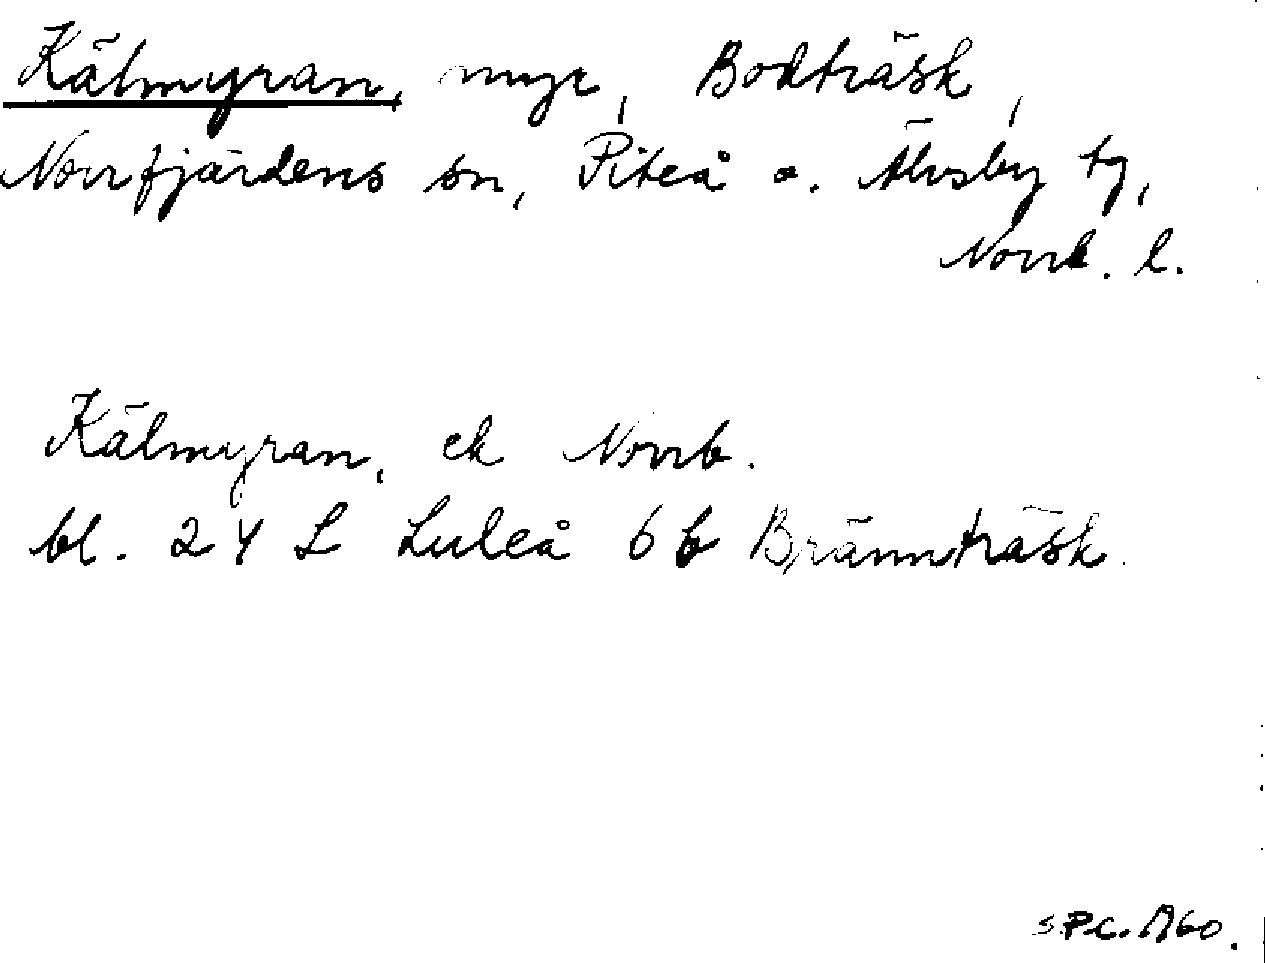 Kälmyran, myr, Bodträsk,
Norrfjärdens sn, Piteå o. Älvsby tg,
Norrb. l.
Kälmyran, ek Norrb.
bl. 24 L Luleå 6 b Brännträsk.
S.P.C. 1960.